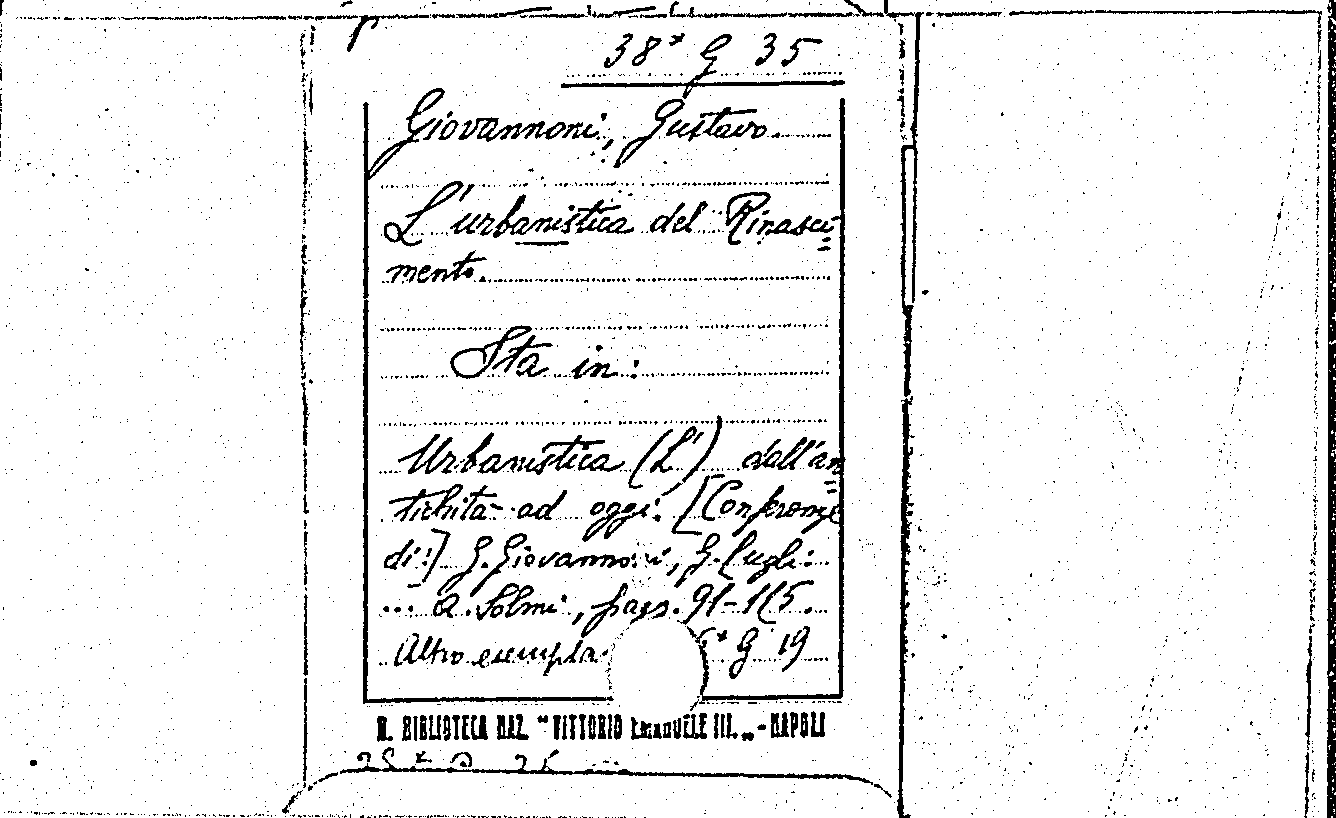 38* G 35
Giovannoni, Gustavo.
L'urbanistica del Rinasci=
mento.
Sta in:
Urbanistica (L') dall'an=
tichità ad oggi. [Conferenze
di:] G. Giovannoni, G. Lugli
... A. Solmi, pags. 91-115.
Altro esempla * G 19
R. BIBLIOTECA NAZ. "VITTORIO EMANUELE III.„ - NAPOLI